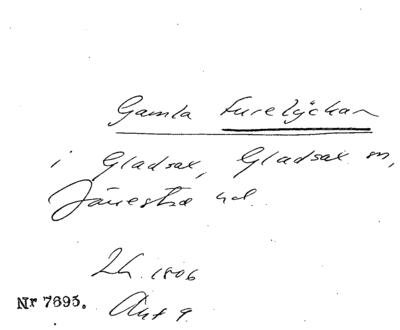 Gamla Furelyckan
i Gladsax, Gladsax sn,
Järrestad hd.
Lh. 1806
Nr 7695. Akt 9